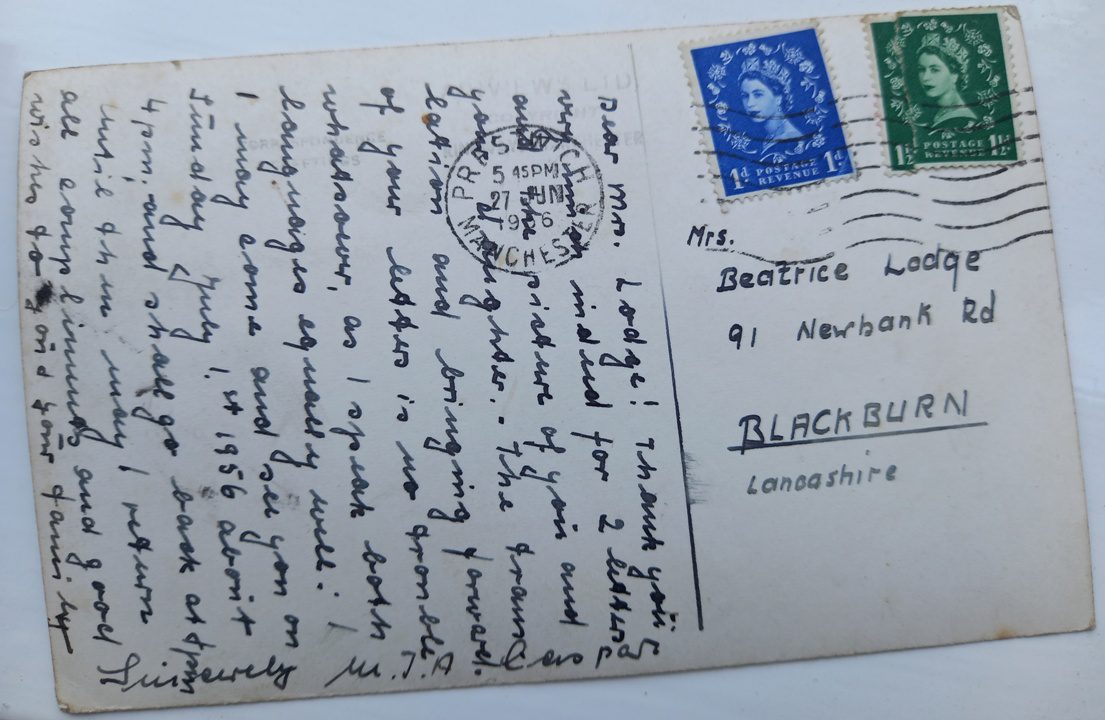 Dear Mr. Lodge! Thank you
very much indeed for 2 letters
and the picture of you and
your daughter. - The trans
lation and bringing forward
of your letters is no trouble
whatsoever, as I speak both
languages equally well. I
I may come and see you on
Sunday July 1.st 1956 about
4 pm. and shall go back at
until then may I return
all compliments and good
wishes to you & your family
Sincerely M. J. A
PRESTWICH
5 45PM
27 JUN
MANCHESTER
1d. POSTAGE REVENUE 1d.
1½d. POSTAGE REVENUE 1½d.
Mrs.
Beatrice Lodge
91 Newbank Rd
BLACKBURN
Lancashire